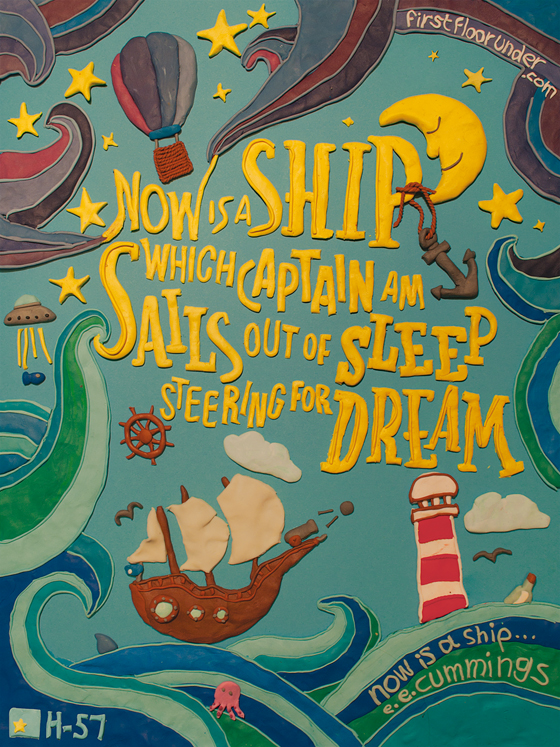 firstfloorunder
.com
NOW IS A SHIP
WHICH CAPTAIN AM
SAILS OUT OF SLEEP
STEERING FOR DREAM
now is a ship...
e.e.cummings
H-57